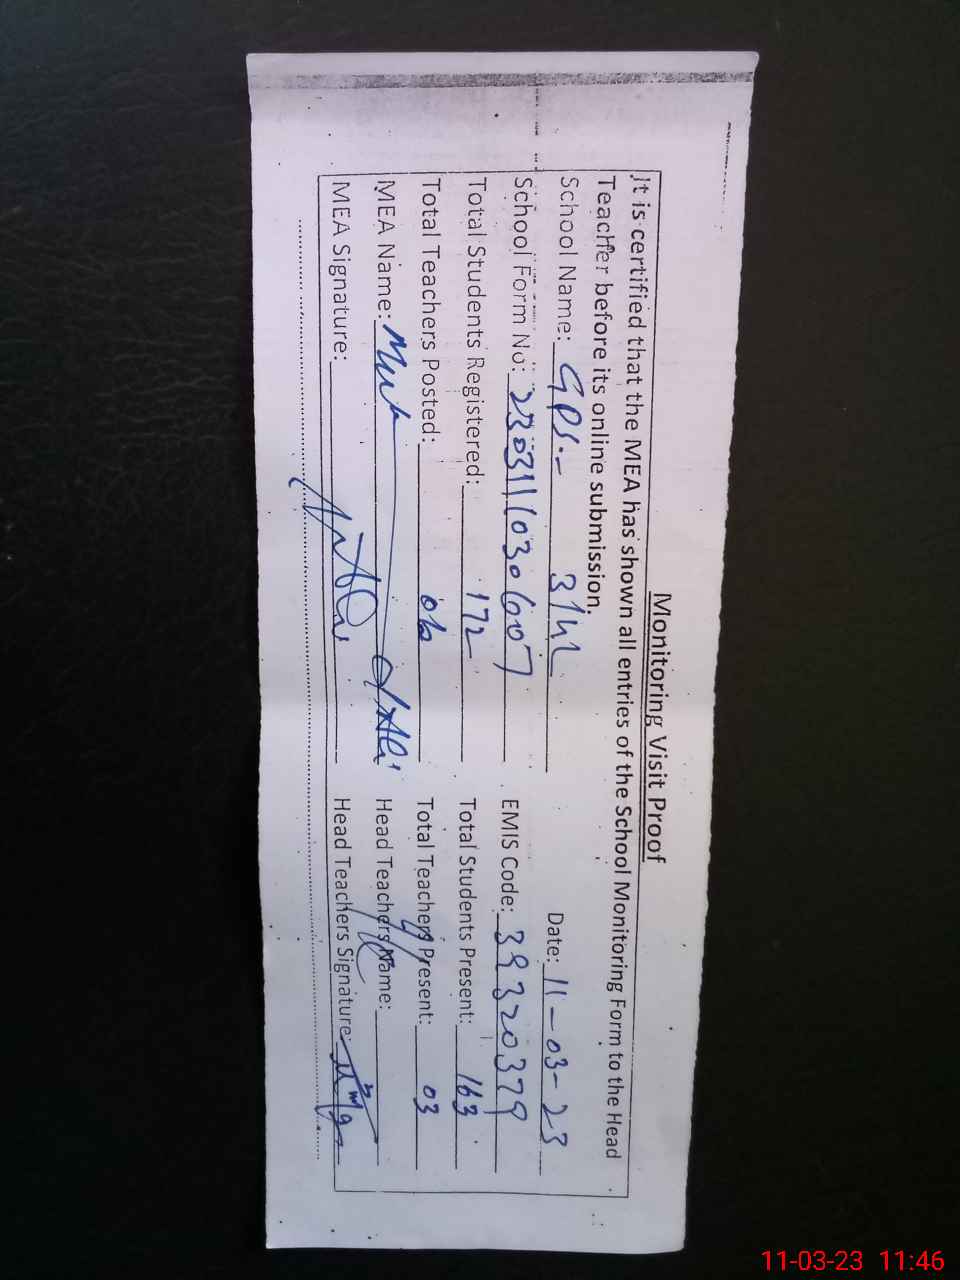 Monitoring Visit Proof
It is certified that the MEA has shown all entries of the School Monitoring Form to the Head
Teacher before its online submission.
School Name: GPS.- 3/4L Date: 11-03-23
School Form No: 230311030607 EMIS Code: 39320379
Total Students Registered: 172 Total Students Present: 163
Total Teachers Posted: Total Teachers Present: 03
MEA Name: Head Teachers Name:
MEA Signature: Head Teachers Signature:
11-03-23 11:46